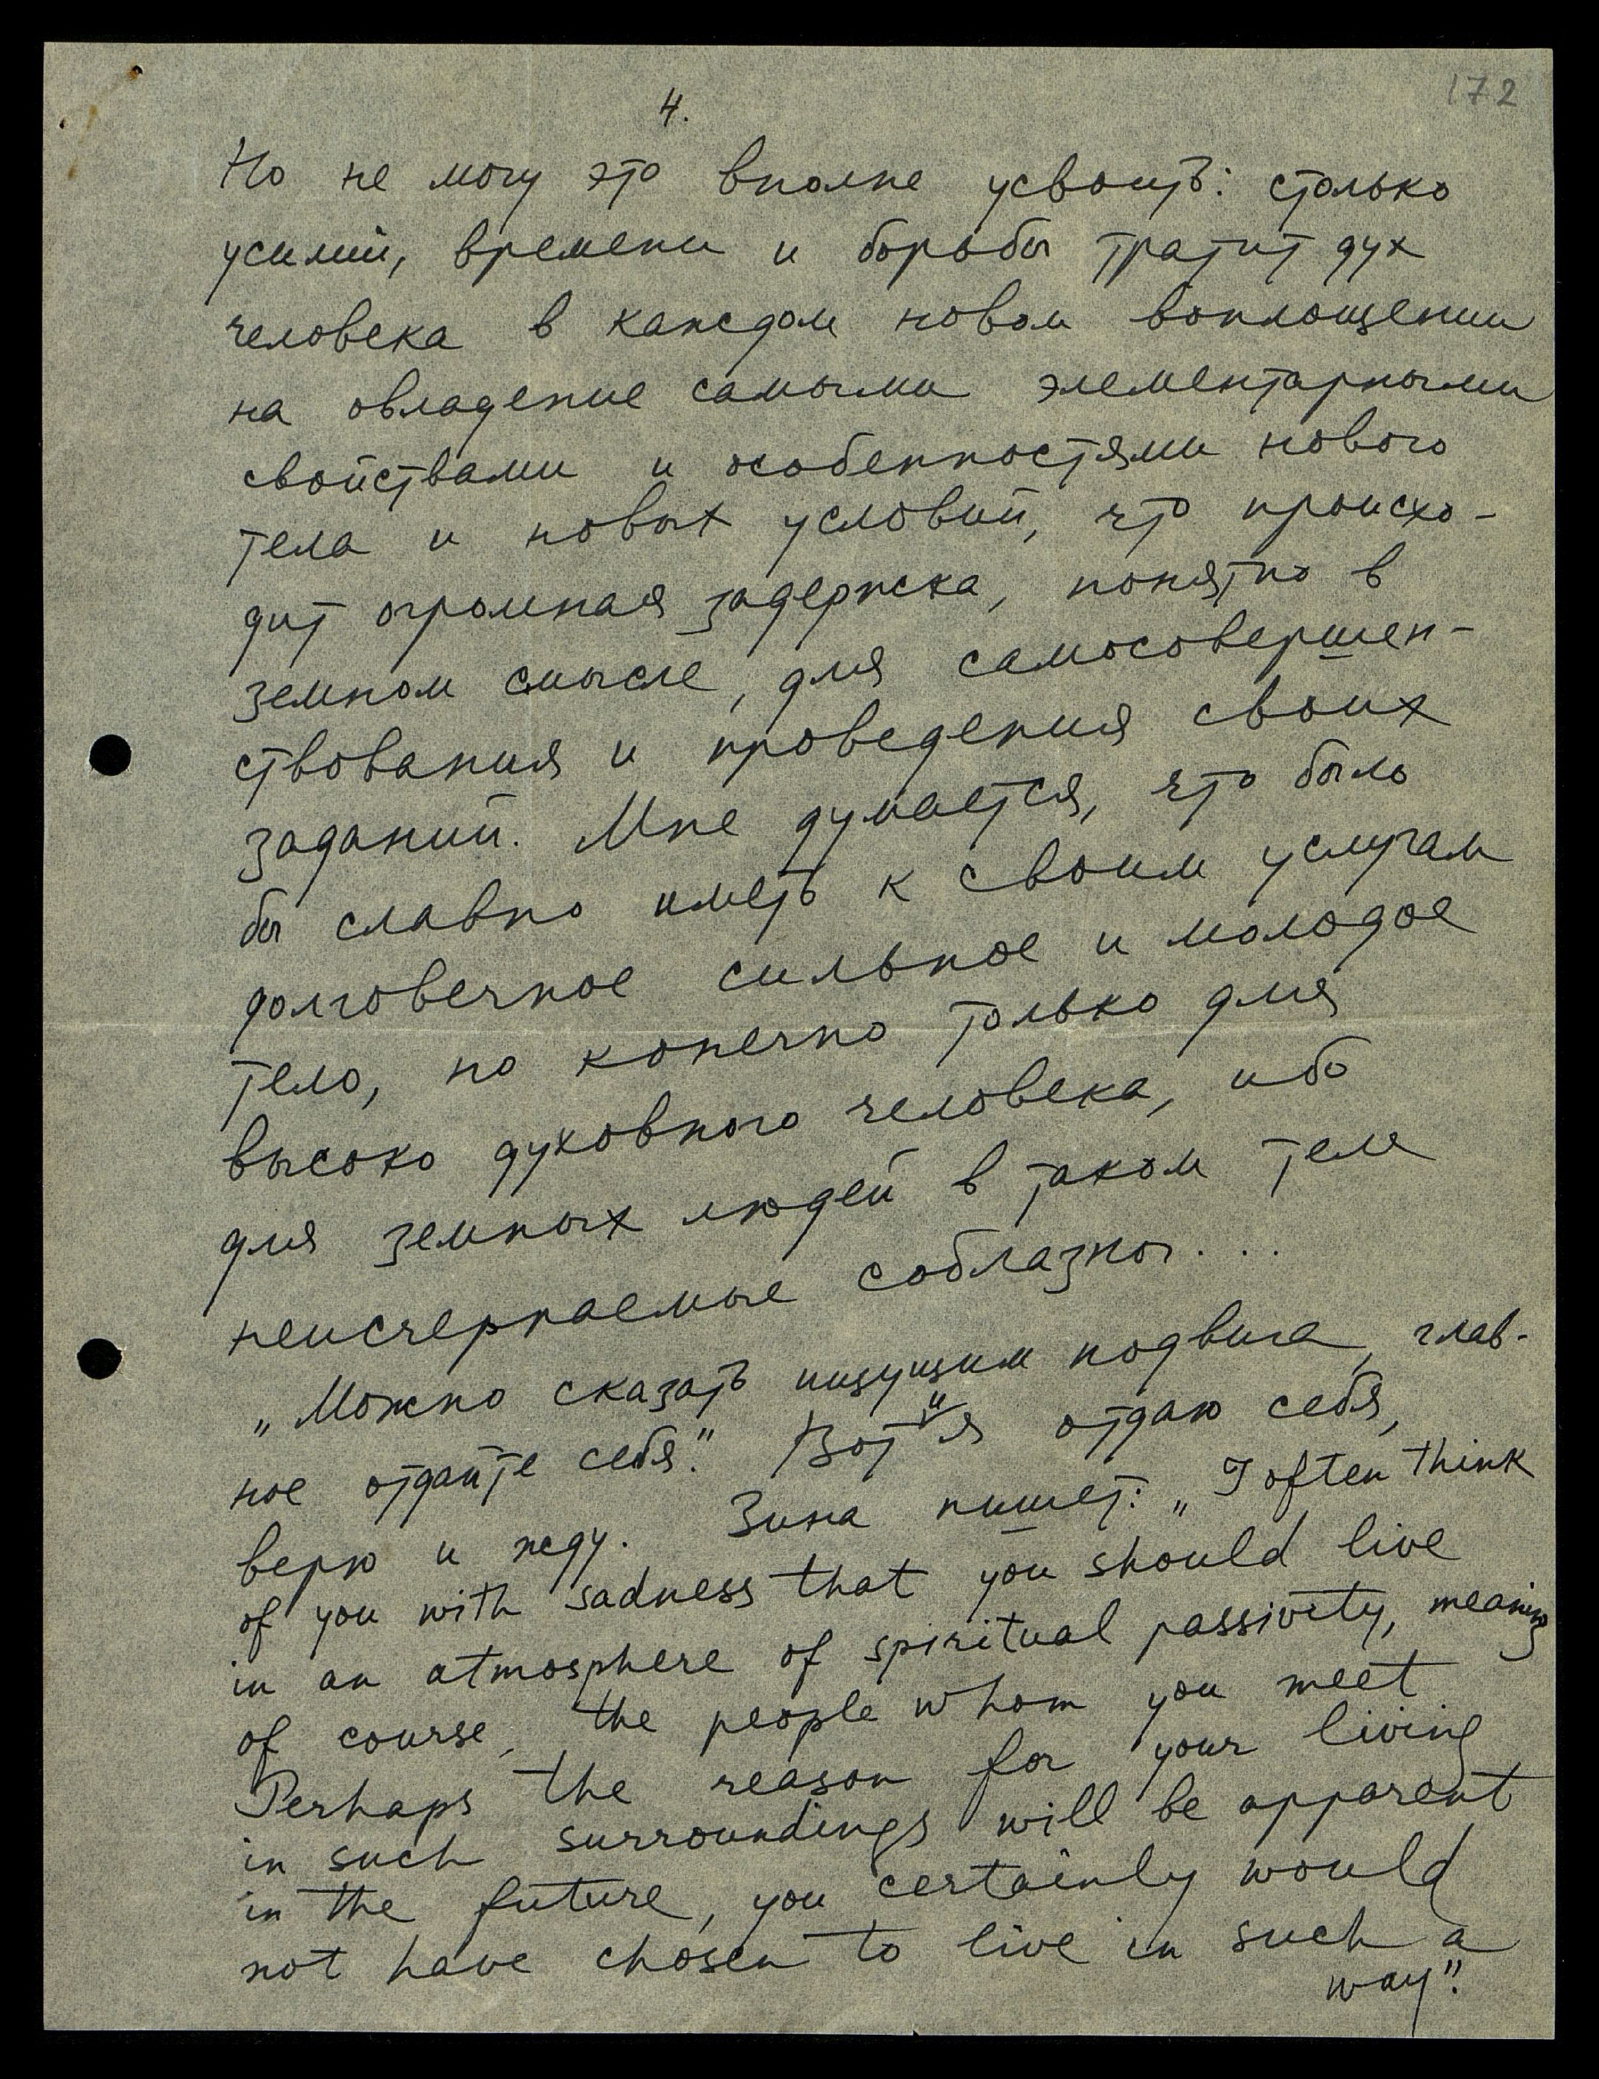 172
4.
Но не могу это вполне усвоить: столько
усилий, времени и борьбы тратит дух
человека в каждом новом воплощении
на овладение самыми элементарными
свойствами и особенностями нового
тела и новых условий, что происхо-
дит огромная задержка, понятно в
земном смысле, для самосовершен-
ствования и проведения своих
заданий. Мне думается, что было
бы славно иметь к своим услугам
долговечное сильное и молодое
тело, но конечно только для
высоко духовного человека, ибо
для земных людей в таком теле
неисчерпаемые соблазны...
„Можно сказать ищущим подвига, глав-
ное отдайте себя." Вот и я отдаю себя,
верю и жду. Зина пишет: „I often think
of you with sadness that you should live
in an atmosphere of spiritual passivity, meaning
of course, the people whom you meet
Perhaps the reason for your living
in such surroundings will be apparent
in the future, you certainly would
not have chosen to live in such a
way".